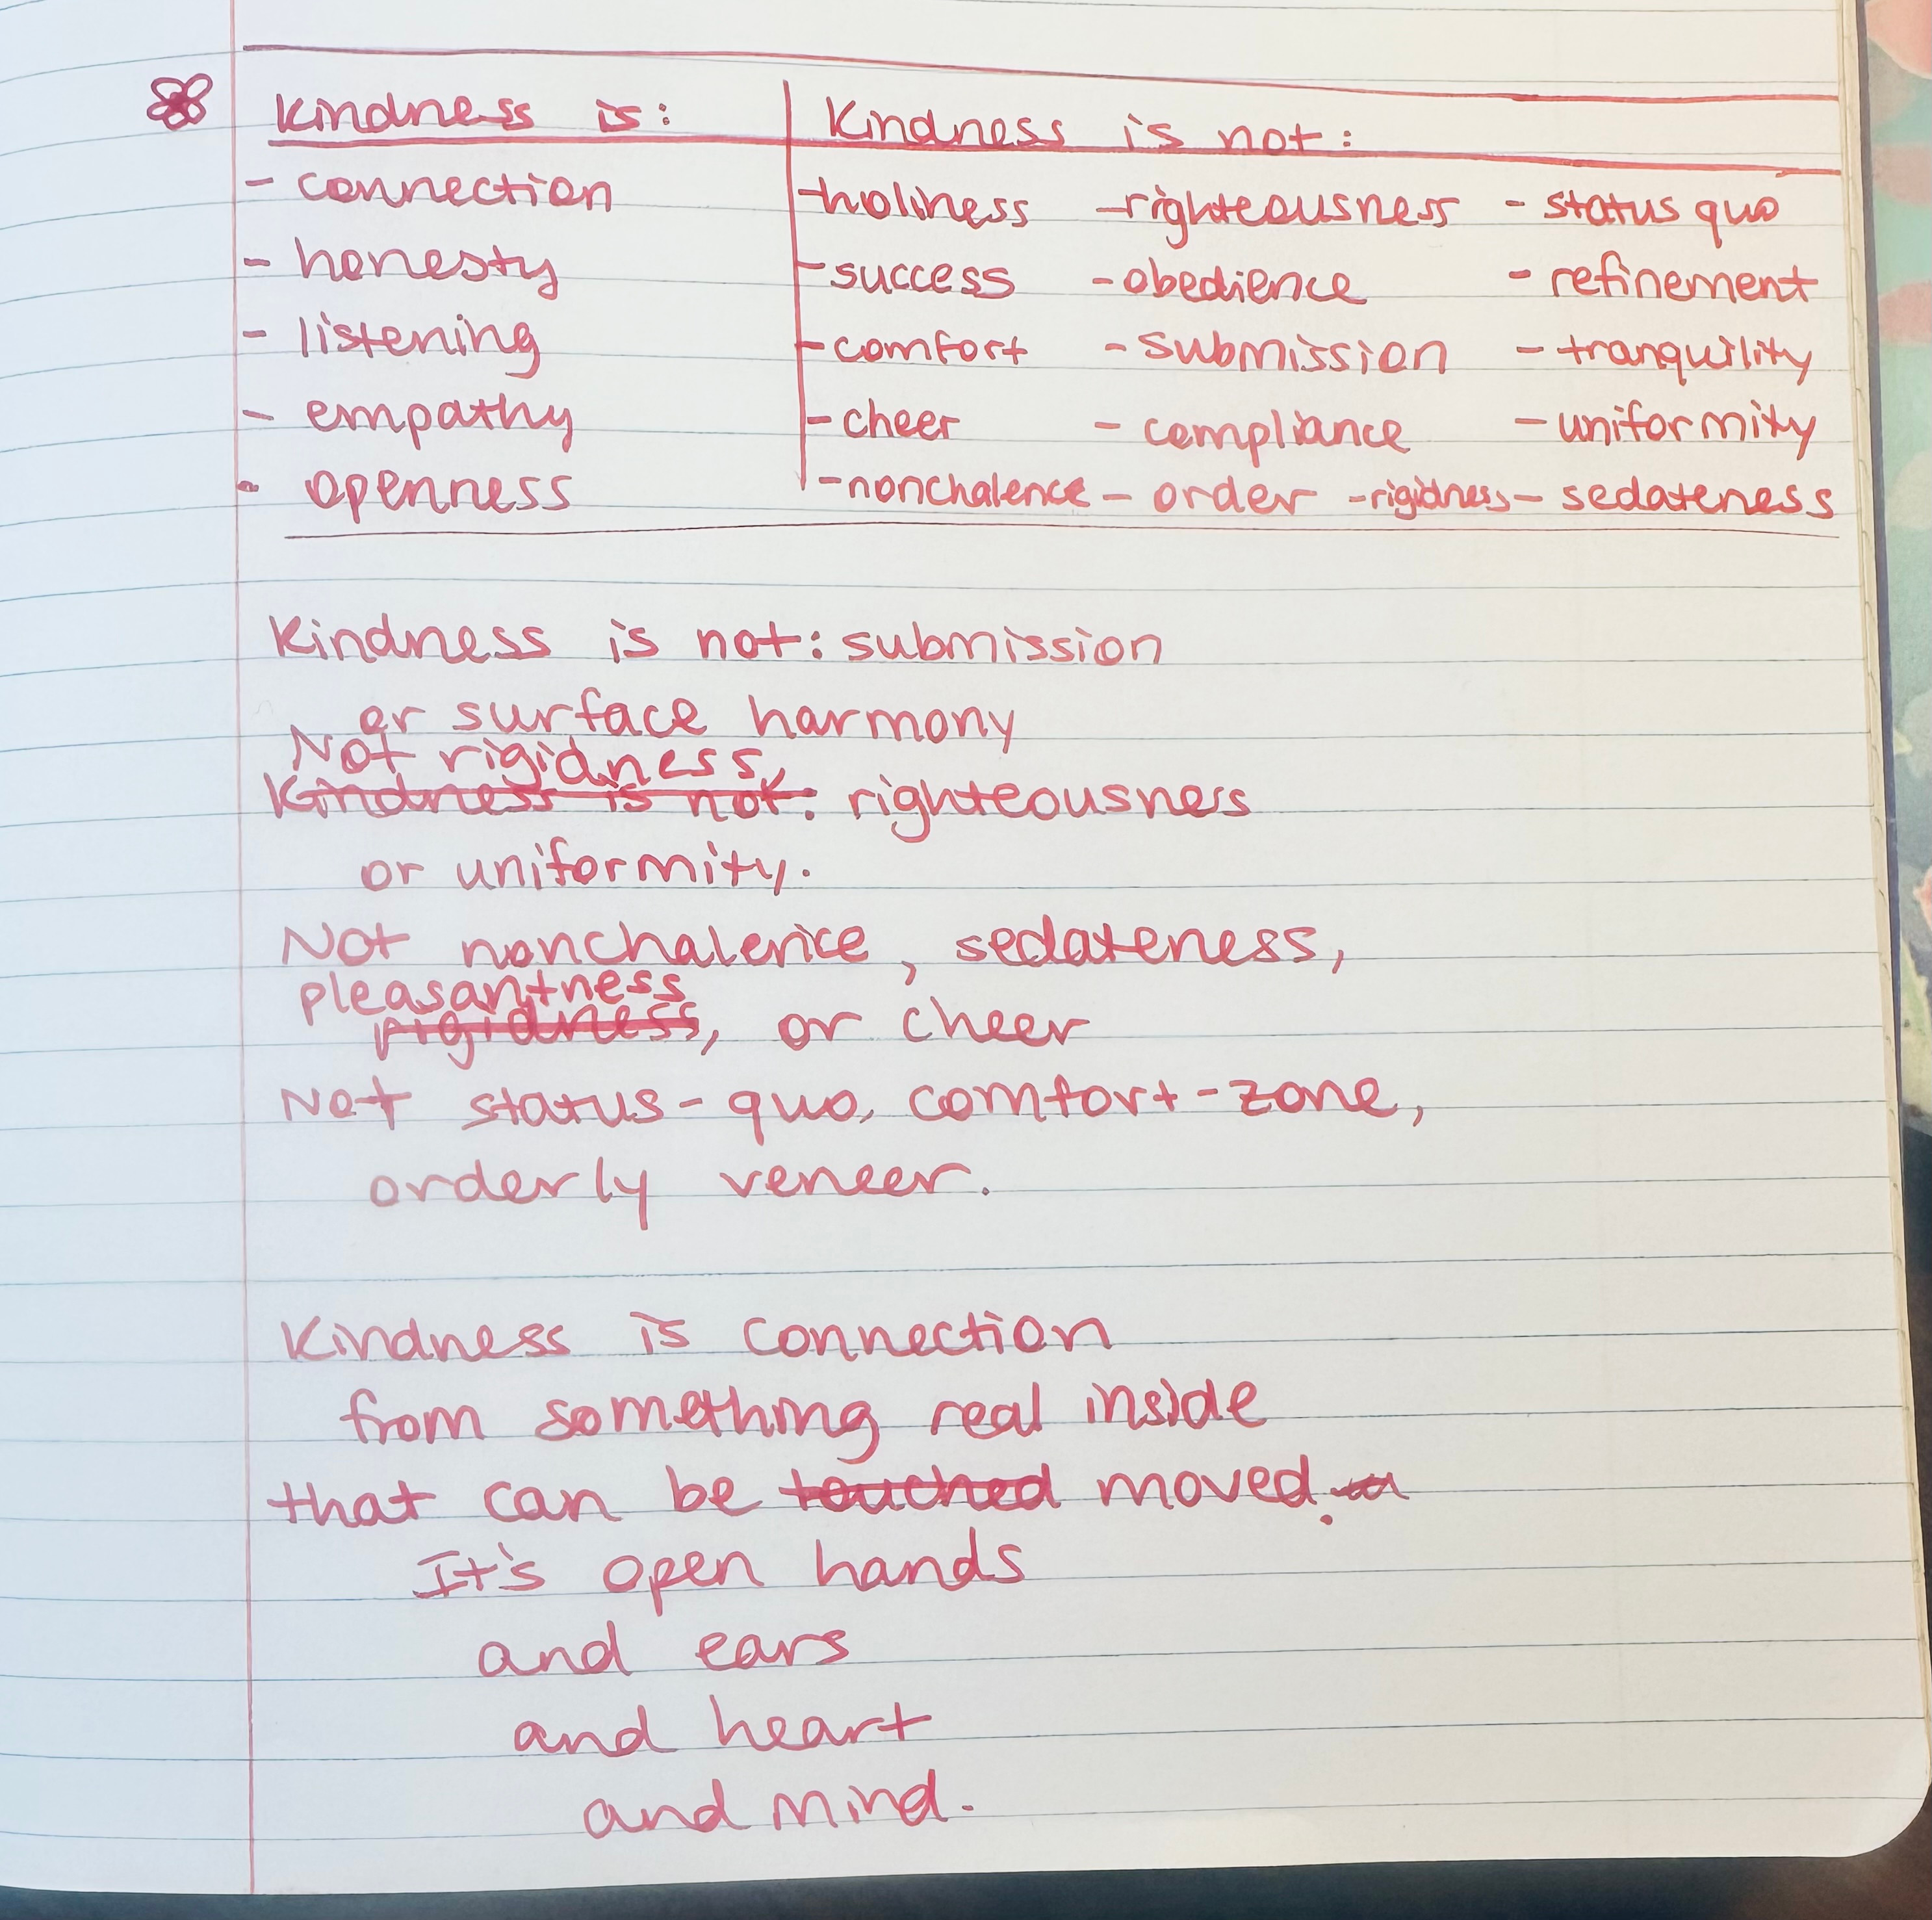 Kindness is: Kindness is not:
- connection -holiness -righteousness - status quo
- honesty -success -obedience - refinement
- listening -comfort -submission - tranquility
- empathy -cheer - compliance - uniformity
- openness -nonchalence - order -rigidness - sedateness
Kindness is not: submission
or surface harmony
Not rigidness,
Kindness is not: righteousness
or uniformity.
Not nonchalence, sedateness,
pleasantness
rigidness, or cheer
Not status-quo, comfort-zone,
orderly veneer.
Kindness is connection
from something real inside
that can be touched moved.
It's open hands
and ears
and heart
and mind.